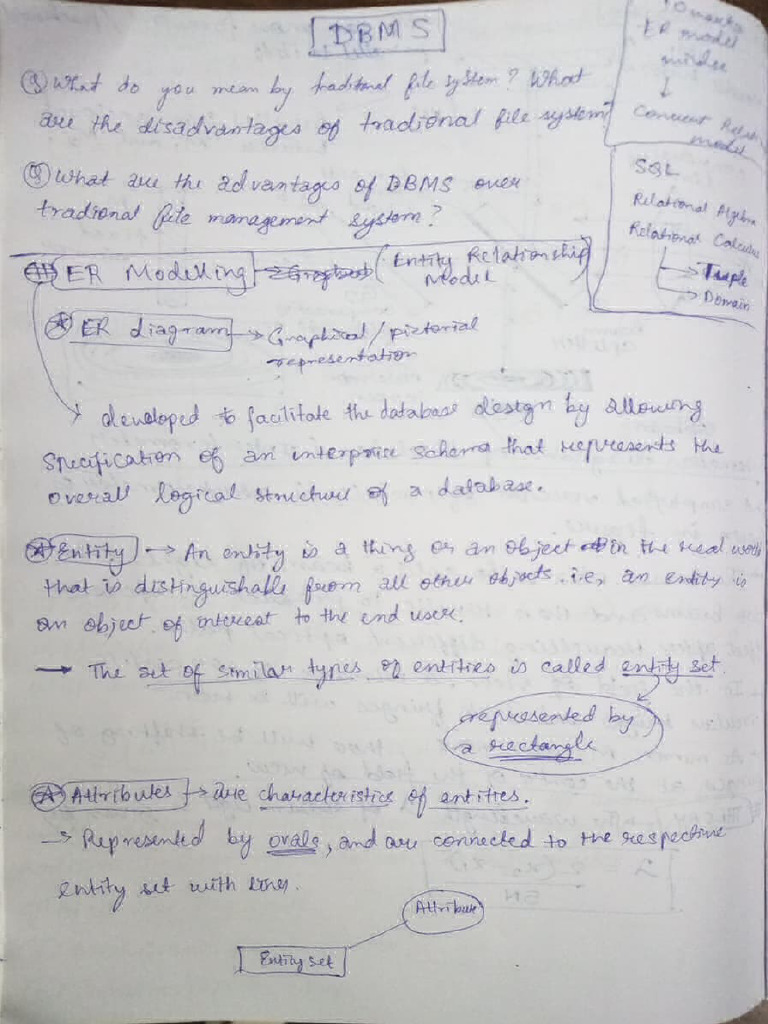 DBMS
10 marks
ER model
↓
Concurrent Relation
model
SQL
Relational Algebra
Relational Calculus
→ Tuple
→ Domain
Q What do you mean by traditional file system? What
are the disadvantages of tradional file system?
Q What are the advantages of DBMS over
tradional file management system?
ER Modelling (Entity Relationship
Model
ER diagram → Graphical/pictorial
representation
→ developed to facilitate the database design by allowing
specification of an interprise schema that represents the
overall logical structure of a database.
Entity → An entity is a thing or an object in the real world
that is distinguishable from all other objects. i.e, an entity is
an object of interest to the end user.
→ The set of similar types of entities is called entity set.
represented by
a rectangle
Attributes → are characteristics of entities.
→ Represented by ovals, and are connected to the respective
entity set with lines.
Attribute
Entity set